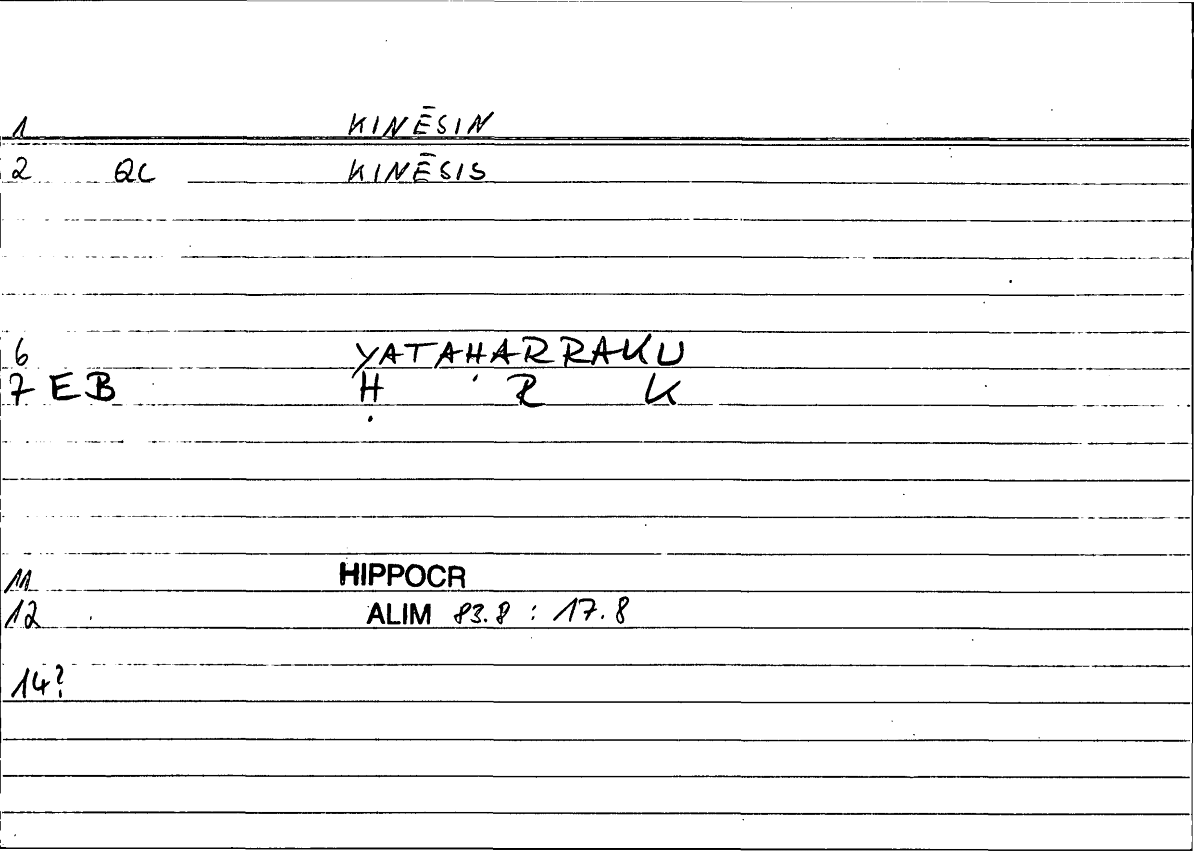 1 KINĒSIN
2 QC KINĒSIS
6 YATAḤARRAKU
7 EB Ḥ R K
11 HIPPOCR
12 ALIM 83.8 : 17.8
14?